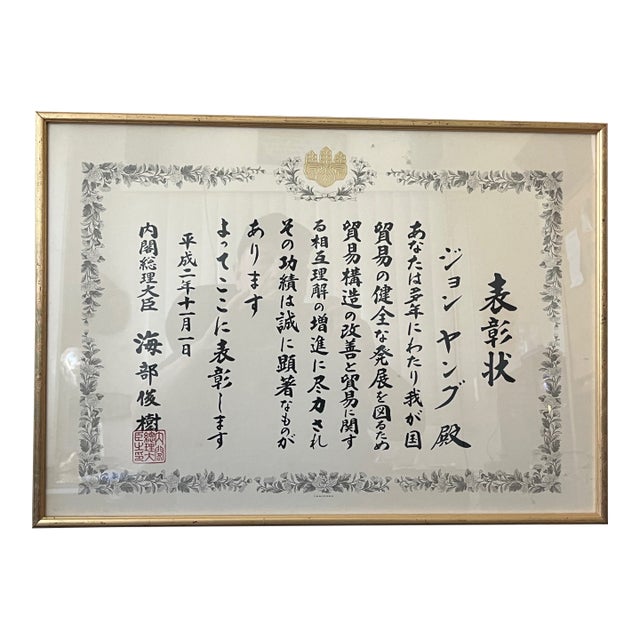 表彰状
ジョン ヤング 殿
あなたは多年にわたり我が国
貿易の健全な発展を図るため
貿易構造の改善と貿易に関す
る相互理解の増進に尽力され
その功績は誠に顕著なものが
あります
よってここに表彰します
平成二年十一月一日
内閣総理大臣 海部俊樹